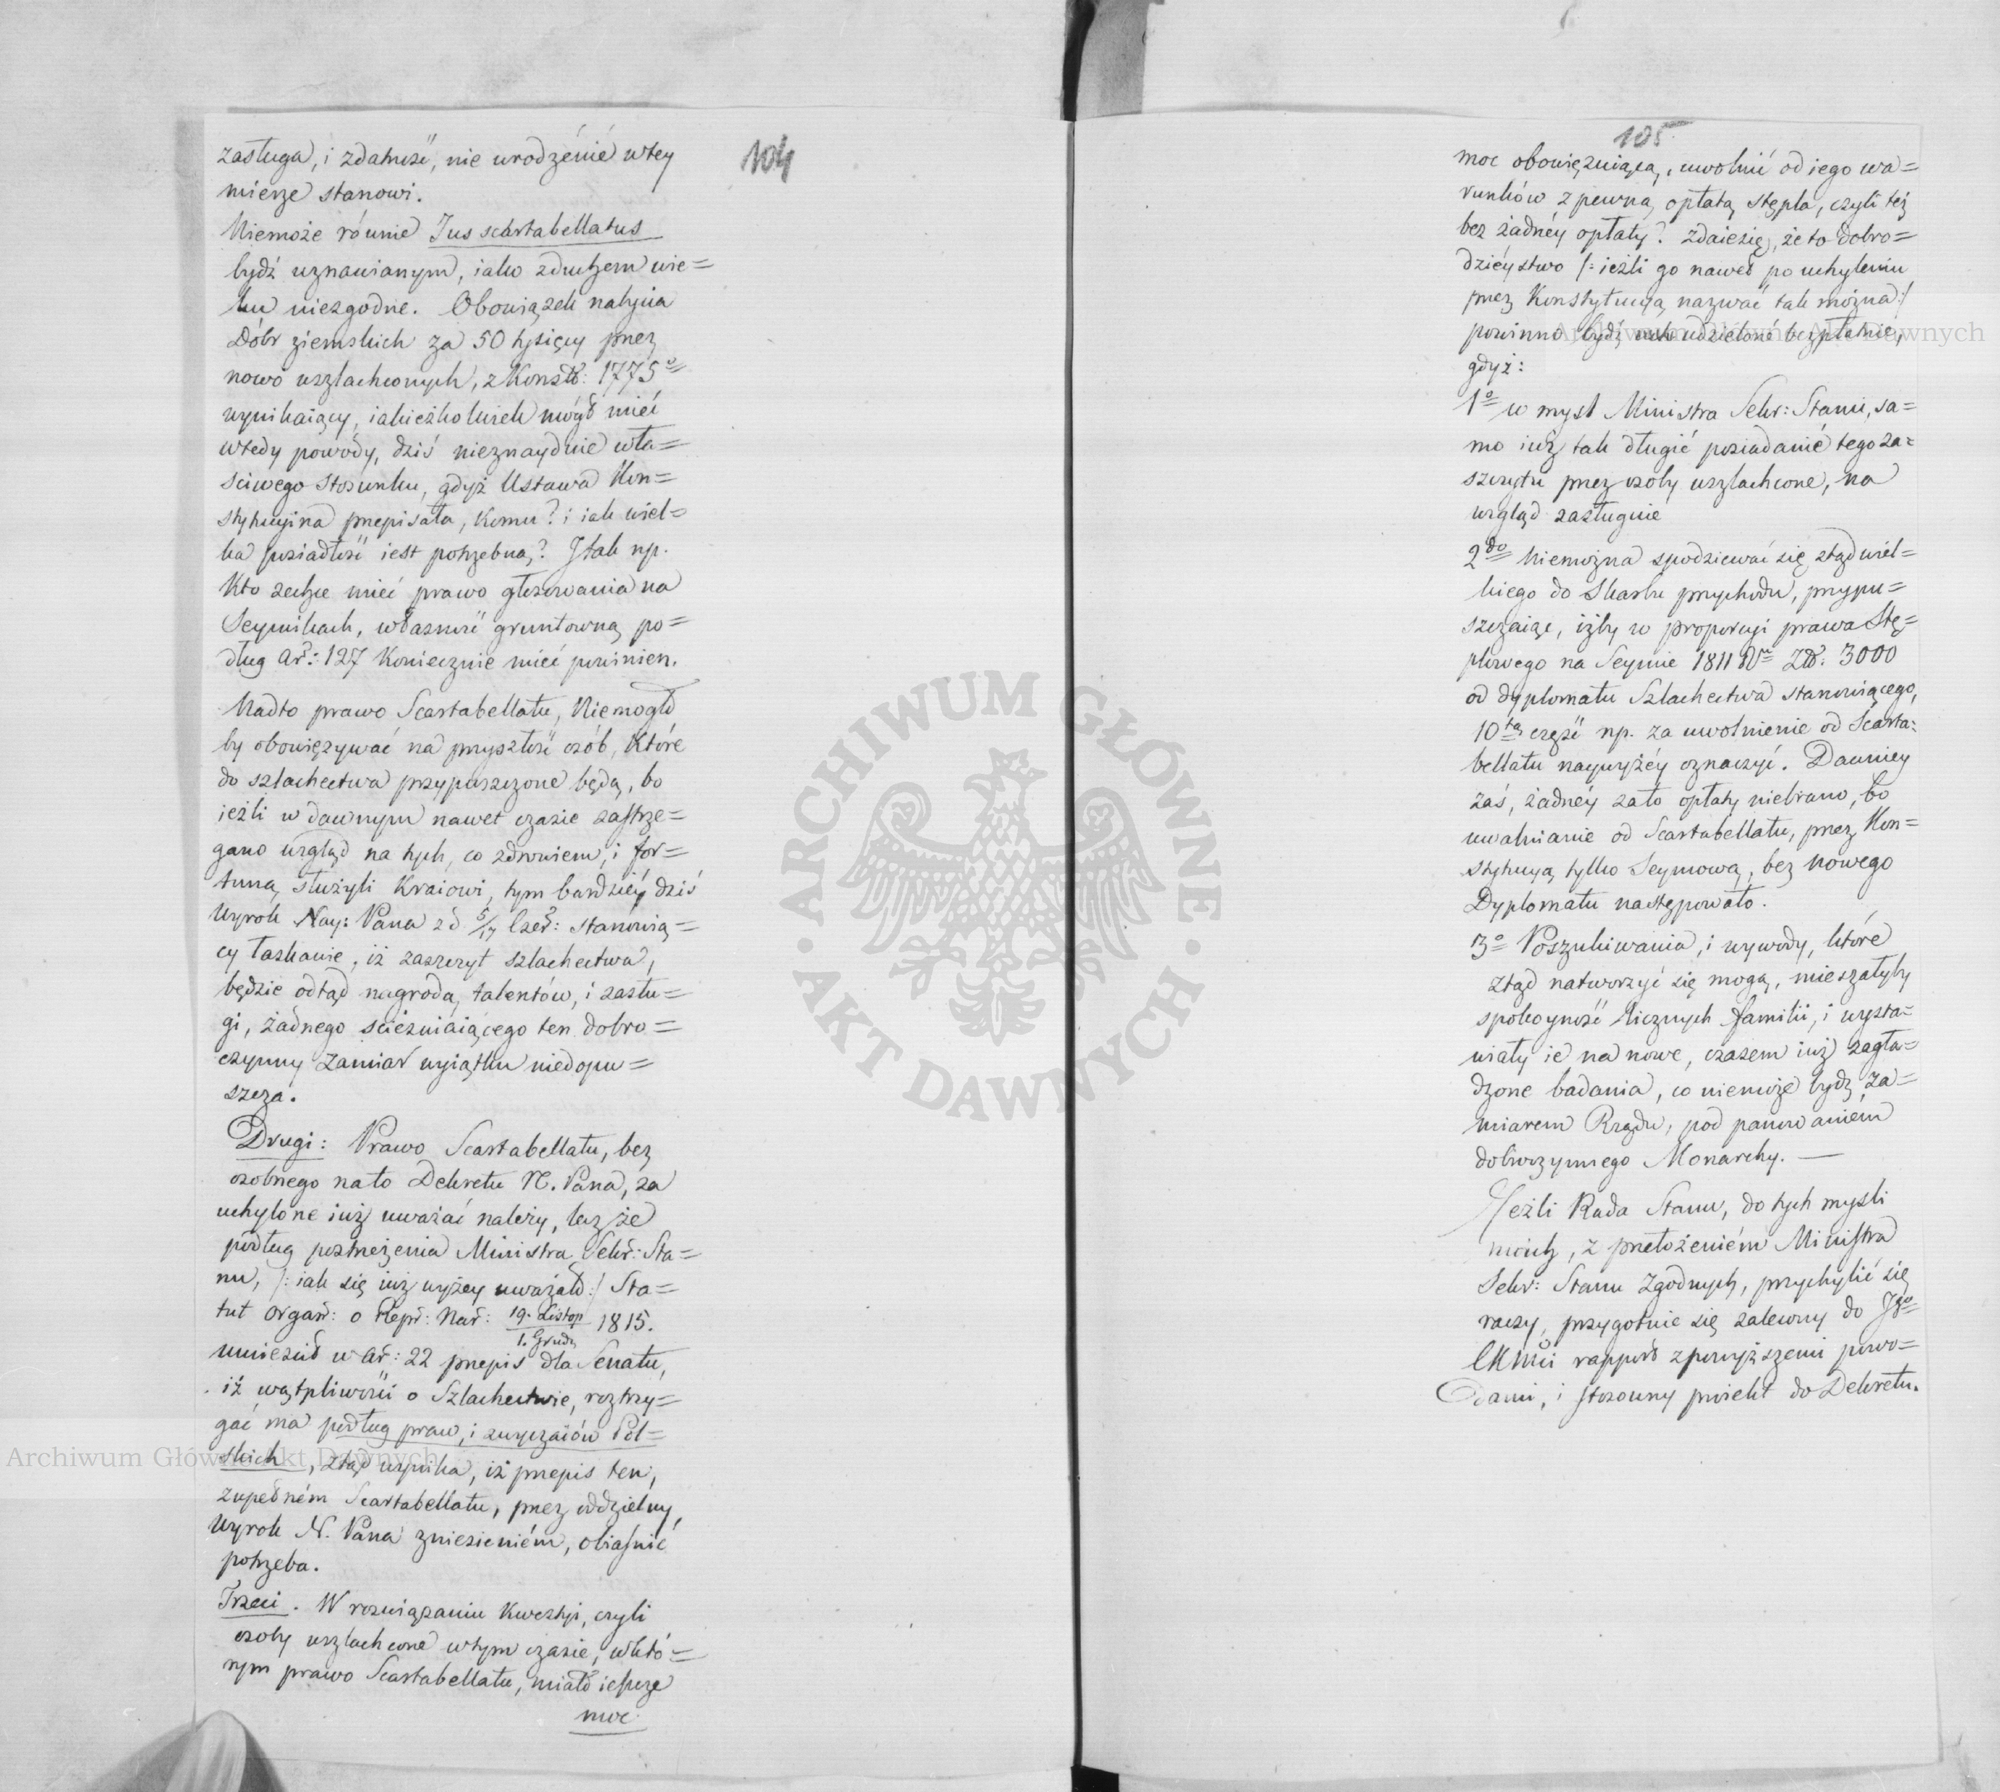 104
zasługa, i zdatność, nie urodzénié w tey
mierze stanowi.
Niemoże równie Jus scartabellatus
bydź uznawianym, iako z duchem wie=
ku niezgodne. Obowiązek nabycia
Dóbr ziemskich za 50 tysięcy przez
nowo uszlachconych, z Konstt: 1775º
wynikaiący, iakieżkolwiek mógł mieć
wtedy powody, dziś nieznayduie wła=
sciwego stosunku, gdyż Ustawa Kon=
stytucyina przepisała, komu? i iak wiel=
ka posiadłość iest potrzebną? Itak np.
Kto zechce mieć prawo głosowania na
Seymikach, własność gruntowną po=
dług Art: 127 koniecznie mieć powinien.
Nadto prawo Scartabellatu, Niemogło
by obowięzywać na przyszłość osób, które
do szlachectwa przypuszczone będą, bo
ieżli w dawnym nawet czasie zastrze=
gano wzgląd na tych, co zdrowiem, i for=
tuną służyli Kraiowi, tym bardziéy dziś
Wyrok Nay: Pana z d 5/17 Czer: stanowią=
cy łaskawie, iż zaszczyt szlachectwa,
będzie odtąd nagrodą talentów, i zasłu=
gi, żadnego scieśniaiącego ten dobro=
czynny zamiar wyiątku niedopu=
szcza.
Drugi: Prawo Scartabellatu, bez
osobnego na to Dekretu N. Pana, za
uchylone iuż uważać należy, lecz że
podług postrzeżenia Ministra Sekr: Sta=
nu, /: iak się iuż wyżey uważało :/ Sta=
tut organ: o Repr: Nar: 19. Listop / 1. Grud 1815.
umieścił w ar: 22 przepis dla Senatu,
iż wątpliwości o Szlachectwie, roztrzy=
gać ma podług praw, i zwyczaiów Pol=
skich, ztąd wynika, iż przepis ten,
zupełném Scartabellatu, przez oddzielny
Wyrok N. Pana zniesieniém, obiaśnić
potrzeba.
Trzeci. W rozwiązaniu Kwestyi, czyli
osoby uszlachcone w tym czasie, w któ=
rym prawo Scartabellatu, miało ieszcze
moc
105
moc obowięzuiącą, uwolnić od iego wa=
runków z pewną opłatą stępla, czyli też
bez żadnéy opłaty? Zdaiesię, że to dobro=
dzieystwo /: ieżli go nawet po uchyleniu
przez Konstytucyą nazwać tak można :/
powinno bydź udzielone bezpłatnie,
gdyż:
1º w mysl Ministra Sekr: Stanu, sa=
mo iuż tak długié posiadanié tego za=
szczytu przez osoby uszlachcone, na
wzgląd zasługuie
2do Niemożna spodziewać się ztąd wiel=
kiego do Skarbu przychodu, przypu=
szczaiąc, iżby w proporcyi prawa Stę=
plowego na Seymie 1811 Ru Zł: 3000
od dyplomatu Szlachectwa stanowiącego,
10tą część np. za uwolnienie od Scarta=
bellatu naywyżéy oznaczyć. Dawniey
zaś, żadnéy za to opłaty niebrano, bo
uwalnianie od Scartabellatu, przez Kon=
stytucyą tylko Seymową, bez nowego
Dyplomatu następowało.
3º Poszukiwania, i wywody, które
ztąd natworzyć się mogą, mieszałyby
spokoyność licznych familii, i wysta=
wiały ie na nowe, czasem iuż zagła=
dzone badania, co niemoże bydź za=
miarem Rządu, pod panowaniém
dobroczynnego Monarchy. —
Jeżli Rada Stanu, do tych myśli
moich, z przełożeniém Ministra
Sekr: Stanu zgodnych, przychylić się
raczy, przygotuie się zalecony do Jgo
CKMci rapport z powyższemi powo=
dami, i stosowny proiekt do Dekretu.
Archiwum Główne Akt Dawnych
ARCHIWUM GŁÓWNE • AKT DAWNYCH •
Archiwum Główne Akt Dawnych